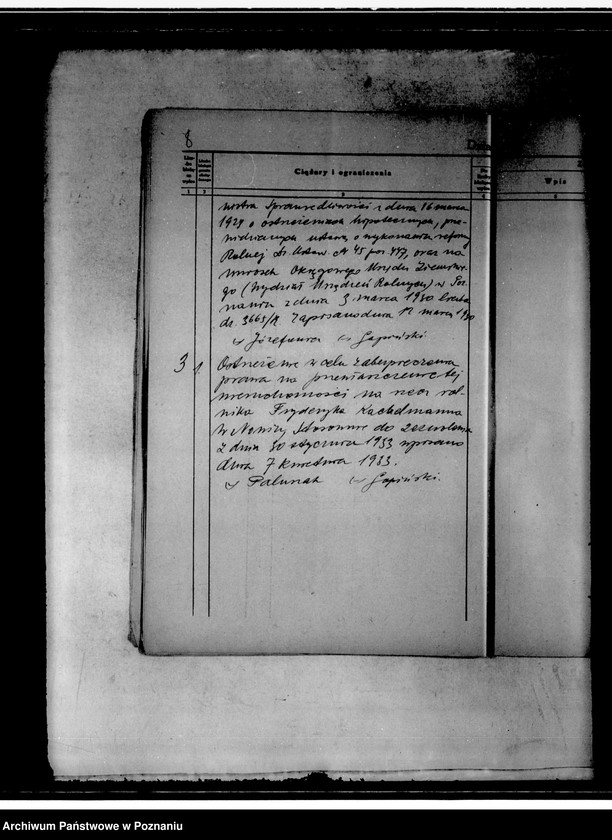 8
Ciężary i ograniczenia
Wpis
1 2 3 4
nistra Sprawiedliwości z dnia 16 marca
1929 o ostrzeżeniach hipotecznych, prze-
widzianych ustawą o wykonaniu reformy
Rolnej Dz. Ustaw № 45 poz. 447, oraz na
wniosek Okręgowego Urzędu Ziemskie-
go (Wydział Urządzeń Rolnych) w Poz-
naniu z dnia 3 marca 1930 liczba
dz. 3665/R Zapisano dnia 12 marca 1930
Gapiński
3 1. Ostrzeżenie w celu zabezpieczenia
prawa na przewłaszczenie tej
nieruchomości na rzecz rol-
nika Fryderyka Kachelmanna
w Nowej stosownie do zezwolenia
z dnia 30 stycznia 1933 wpisano
dnia 7 kwietnia 1933.
Paluszak Gapiński.
Archiwum Państwowe w Poznaniu